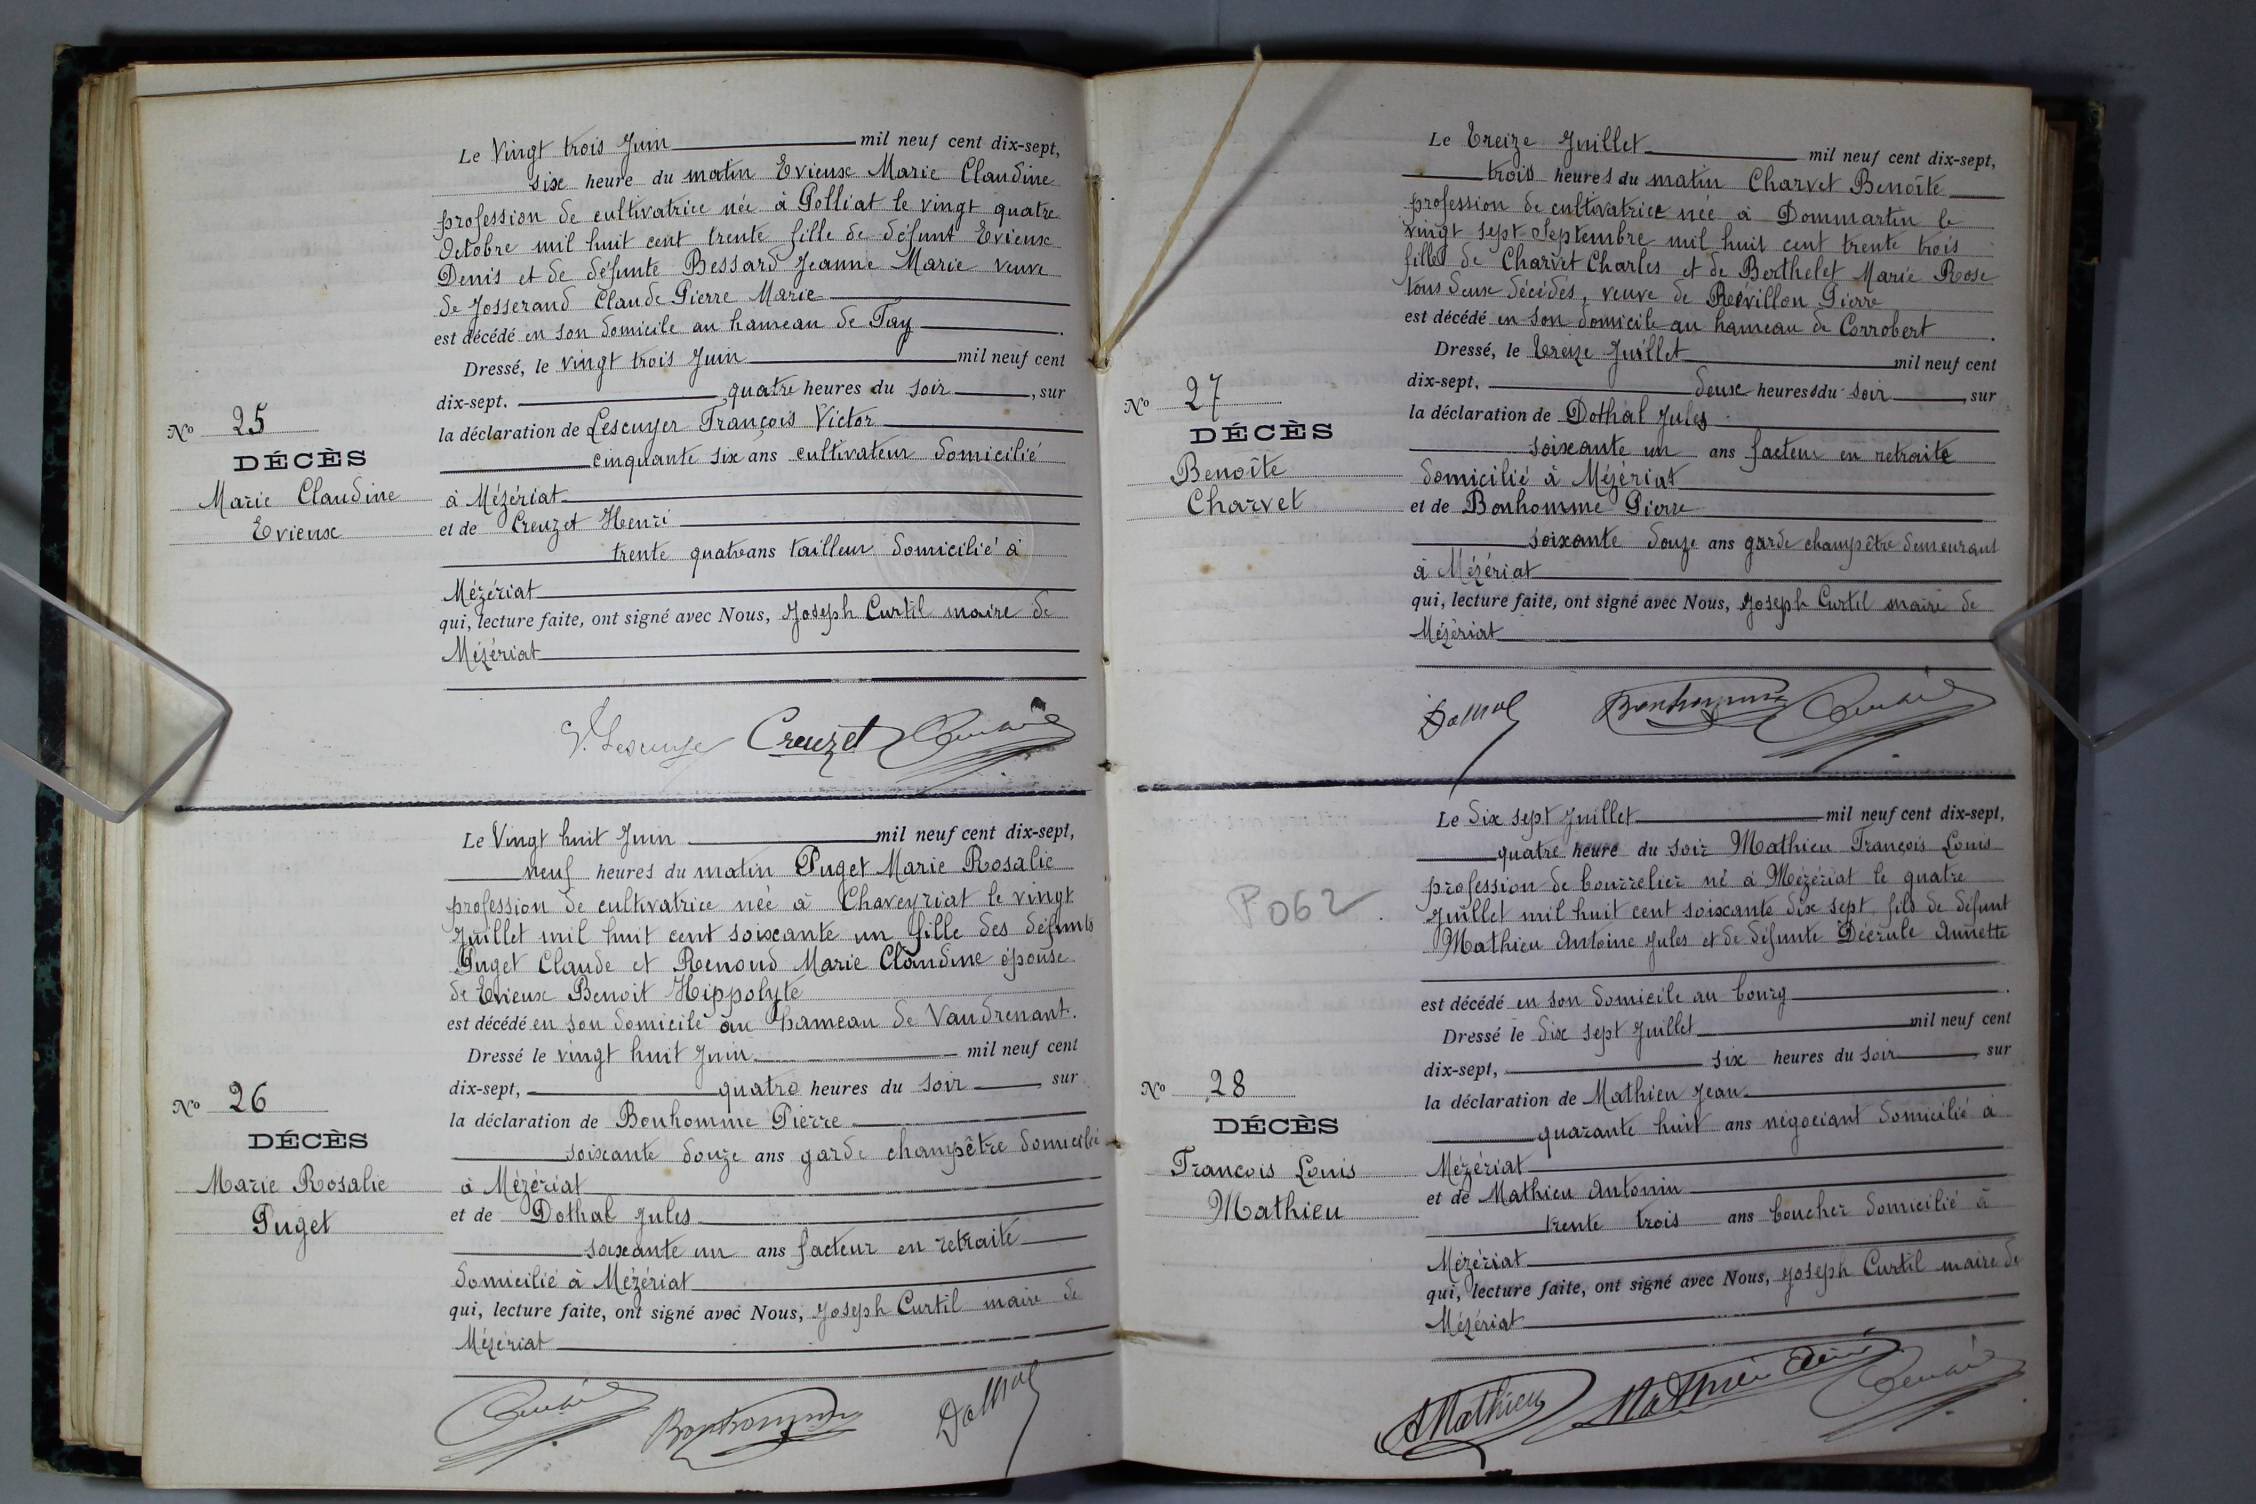 Le Vingt trois Juin mil neuf cent dix-sept,
six heure du matin Evieux Marie Claudine
profession de cultivatrice née à Polliat le vingt quatre
Octobre mil huit cent trente fille de défunt Evieux
Denis et de défunte Bessard Jeanne Marie veuve
de Josserand Claude Pierre Marie
est décédé en son domicile au hameau de Tay.
Dressé, le vingt trois Juin mil neuf cent
dix-sept. quatre heures du soir, sur
No 25
la déclaration de Lescuyer François Victor
DÉCÈS
cinquante six ans cultivateur domicilié
Marie Claudine
à Mézériat
Evieux
et de Creuzet Henri
trente quatre ans tailleur domicilié à
Mézériat
qui, lecture faite, ont signé avec Nous, Joseph Curtil maire de
Mézériat
V. Lescuyer Creuzet
Le Vingt huit Juin mil neuf cent dix-sept,
neuf heures du matin Puget Marie Rosalie
profession de cultivatrice née à Chaveyriat le vingt
Juillet mil huit cent soixante un fille des défunts
Puget Claude et Renoud Marie Claudine épouse
de Evieux Benoit Hippolyte
est décédé en son domicile au hameau de Vaudrenant.
Dressé le vingt huit Juin mil neuf cent
dix-sept, quatre heures du soir sur
No 26
la déclaration de Bonhomme Pierre
DÉCÈS
soixante douze ans garde champêtre domicilié
Marie Rosalie
à Mézériat
Puget
et de Dothal Jules
soixante un ans facteur en retraite
domicilié à Mézériat
qui, lecture faite, ont signé avec Nous, Joseph Curtil maire de
Mézériat
Bonhomme Dothal
Le Treize Juillet mil neuf cent dix-sept,
trois heures du matin Charvet Benoîte
profession de cultivatrice née à Dommartin le
vingt sept Septembre mil huit cent trente trois
fille de Charvet Charles et de Berthelet Marie Rose
tous deux décédés, veuve de Révillon Pierre
est décédé en son domicile au hameau de Corrobert.
Dressé, le Treize Juillet mil neuf cent
dix-sept, deux heures du soir, sur
No 27
la déclaration de Dothal Jules
DÉCÈS
soixante un ans facteur en retraite
Benoîte
domicilié à Mézériat
Charvet
et de Bonhomme Pierre
soixante douze ans garde champêtre demeurant
à Mézériat
qui, lecture faite, ont signé avec Nous, Joseph Curtil maire de
Mézériat
Dothal Bonhomme
Le dix sept Juillet mil neuf cent dix-sept,
quatre heure du soir Mathieu François Louis
profession de bourrelier né à Mézériat le quatre
P062
Juillet mil huit cent soixante dix sept fils de défunt
Mathieu Antoine Jules et de défunte Décrule Annette
est décédé en son domicile au bourg.
Dressé le dix sept Juillet mil neuf cent
dix-sept, six heures du soir, sur
No 28
la déclaration de Mathieu Jean
DÉCÈS
quarante huit ans négociant domicilié à
François Louis
Mézériat
Mathieu
et de Mathieu Antonin
trente trois ans boucher domicilié à
Mézériat
qui, lecture faite, ont signé avec Nous, Joseph Curtil maire de
Mézériat
AMathieu Mathieu